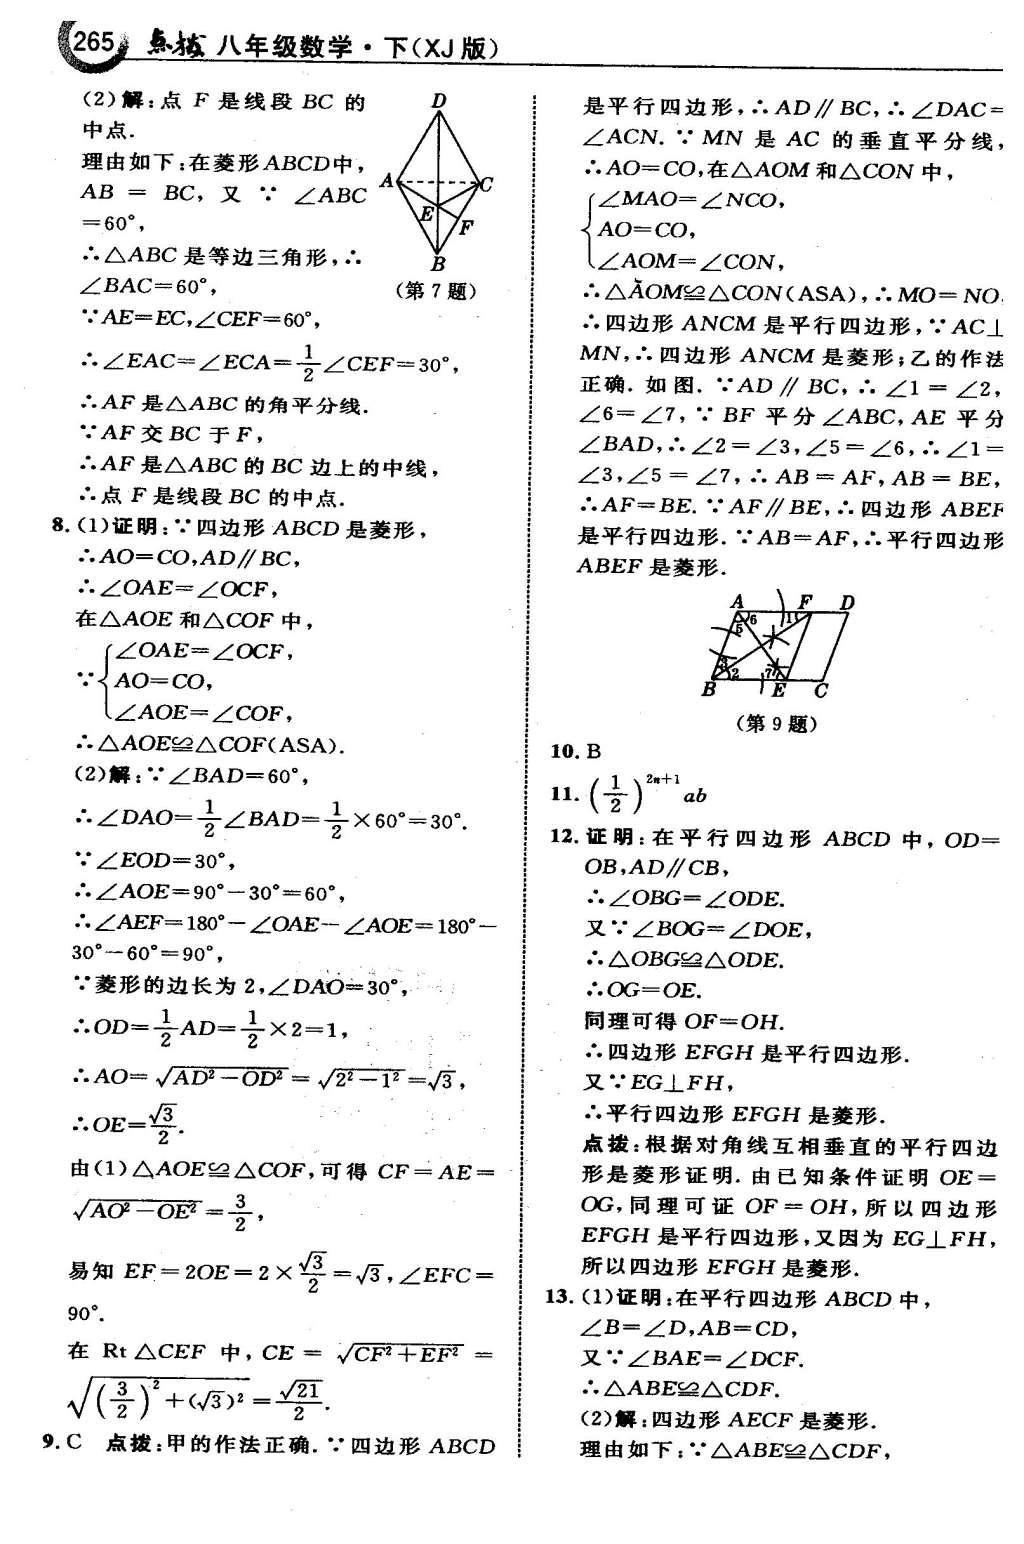 265 点拨 八年级数学·下(XJ版)
(2)解:点 F 是线段 BC 的
中点.
理由如下:在菱形ABCD中,
AB = BC, 又 ∵ ∠ABC
=60°,
∴△ABC 是等边三角形,∴
∠BAC=60°,
∵AE=EC,∠CEF=60°,
∴∠EAC=∠ECA=1/2∠CEF=30°,
∴AF 是△ABC 的角平分线.
∵AF 交 BC 于 F,
∴AF 是△ABC 的 BC 边上的中线,
∴点 F 是线段 BC 的中点.
D
A
C
E
F
B
(第 7 题)
8. (1)证明:∵四边形 ABCD 是菱形,
∴AO=CO,AD∥BC,
∴∠OAE=∠OCF,
在△AOE 和△COF 中,
∵{∠OAE=∠OCF,
AO=CO,
∠AOE=∠COF,
∴△AOE≌△COF(ASA).
(2)解:∵∠BAD=60°,
∴∠DAO=1/2∠BAD=1/2×60°=30°.
∵∠EOD=30°,
∴∠AOE=90°-30°=60°,
∴∠AEF=180°-∠OAE-∠AOE=180°-
30°-60°=90°,
∵菱形的边长为 2,∠DAO=30°,
∴OD=1/2AD=1/2×2=1,
∴AO=√(AD²-OD²)=√(2²-1²)=√3,
∴OE=√3/2.
由(1)△AOE≌△COF,可得 CF=AE=
√(AO²-OE²)=3/2,
易知 EF=2OE=2×√3/2=√3,∠EFC=
90°.
在 Rt△CEF 中, CE = √(CF²+EF²) =
√((3/2)²+(√3)²)=√21/2.
9. C 点拨:甲的作法正确.∵四边形 ABCD
是平行四边形,∴AD∥BC,∴∠DAC=
∠ACN.∵MN 是 AC 的垂直平分线,
∴AO=CO,在△AOM 和△CON 中,
{∠MAO=∠NCO,
AO=CO,
∠AOM=∠CON,
∴△AOM≌△CON(ASA),∴MO=NO.
∴四边形 ANCM 是平行四边形,∵AC⊥
MN,∴四边形 ANCM 是菱形;乙的作法
正确.如图.∵AD∥BC,∴∠1=∠2,
∠6=∠7,∵BF 平分∠ABC,AE 平分
∠BAD,∴∠2=∠3,∠5=∠6,∴∠1=
∠3,∠5=∠7,∴AB=AF,AB=BE,
∴AF=BE.∵AF∥BE,∴四边形 ABEF
是平行四边形.∵AB=AF,∴平行四边形
ABEF 是菱形.
A F D
5 6 1
3 2 7
B E C
(第 9 题)
10. B
11. (1/2)²ⁿ⁺¹ab
12. 证明:在平行四边形 ABCD 中,OD=
OB,AD∥CB,
∴∠OBG=∠ODE.
又∵∠BOG=∠DOE,
∴△OBG≌△ODE.
∴OG=OE.
同理可得 OF=OH.
∴四边形 EFGH 是平行四边形.
又∵EG⊥FH,
∴平行四边形 EFGH 是菱形.
点拨:根据对角线互相垂直的平行四边
形是菱形证明.由已知条件证明 OE=
OG,同理可证 OF=OH,所以四边形
EFGH 是平行四边形,又因为 EG⊥FH,
所以四边形 EFGH 是菱形.
13. (1)证明:在平行四边形 ABCD 中,
∠B=∠D,AB=CD,
又∵∠BAE=∠DCF.
∴△ABE≌△CDF.
(2)解:四边形 AECF 是菱形.
理由如下:∵△ABE≌△CDF,